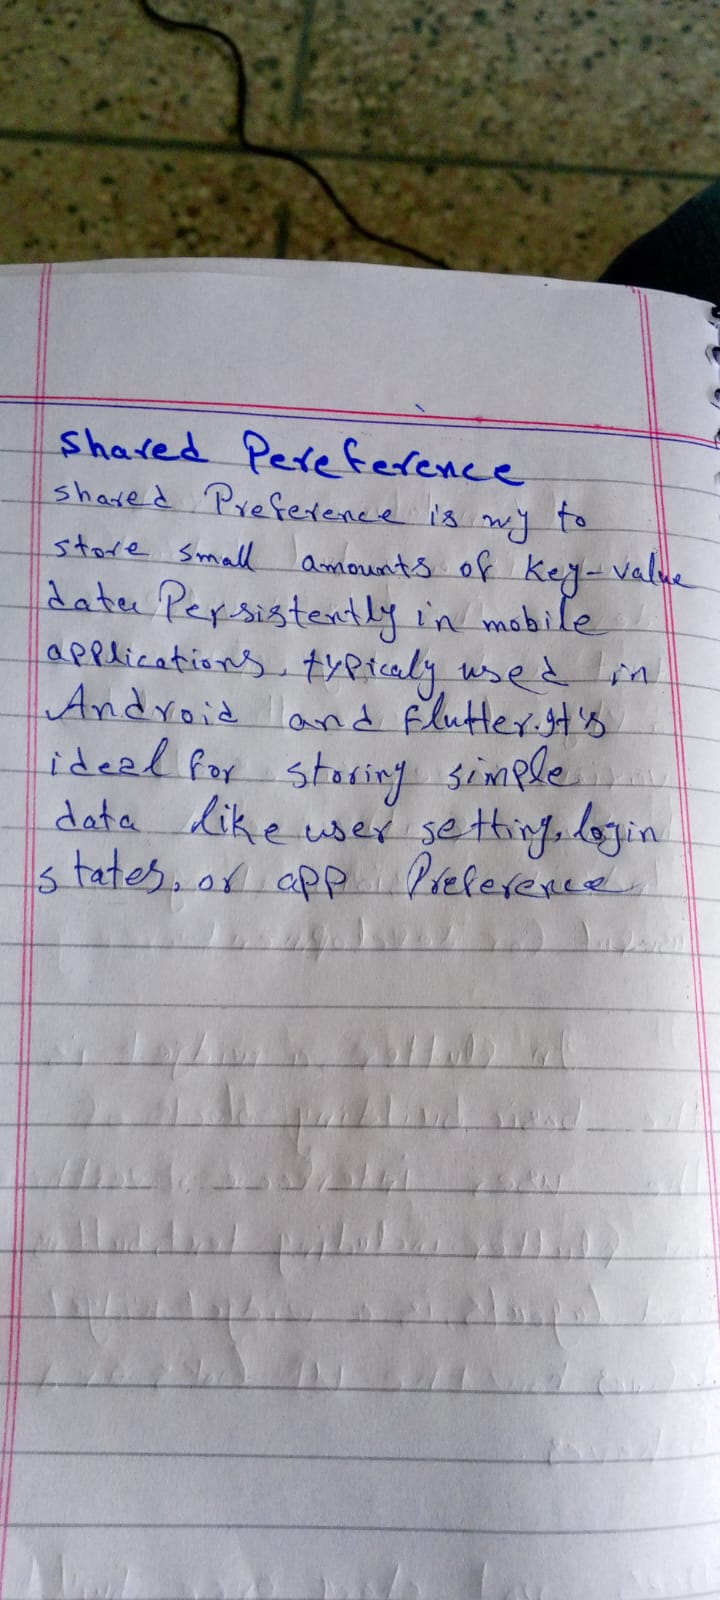 Shared Pereference
shared Preference is wy to
store small amounts of key-value
data Persistently in mobile
applications, typicaly used in
Android and flutter.It's
ideal for storing simple
data like user setting, login
states, or app Preference